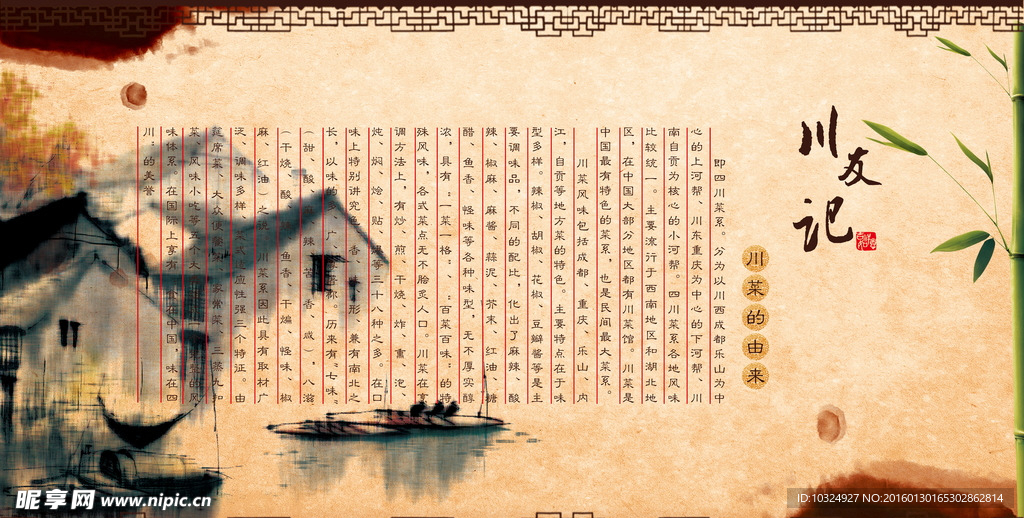 川友记
川菜的由来
即四川菜系。分为以川西成都乐山为中
心的上河帮、川东重庆为中心的下河帮、川
南自贡为核心的小河帮。四川菜系各地风味
比较统一。主要流行于西南地区和湖北地
区，在中国大部分地区都有川菜馆。川菜是
中国最有特色的菜系，也是民间最大菜系。
川菜风味包括成都、重庆、乐山、内
江，自贡等地方菜的特色。主要特点在于味
型多样。辣椒、胡椒、花椒、豆瓣酱等是主
要调味品，不同的配比，化出了麻辣、酸
辣、椒麻、麻酱、蒜泥、芥末、红油、糖
醋、鱼香、怪味等各种味型，无不厚实醇
浓，具有：一菜一格：、：百菜百味：的特
殊风味，各式菜点无不脍炙人口。川菜在烹
调方法上，有炒、煎、干烧、炸、熏、泡、
炖、焖、烩、贴、爆等三十八种之多。在口
味上特别讲究色、香、味、形，兼有南北之
长，以味的多、广、
称。历来有：七味：
（甜、酸、
辣、苦、香、咸），八滋
（干烧、酸、
鱼香、干煸、怪味、椒
麻、红油）之
川菜系因此具有取材广
泛、调味多样、菜式适应性强三个特征。由
筵席菜、大众便
家常菜、三蒸九扣
菜、风味小吃等五个大
的风
味体系。在国际上享有
在中国，味在四
川：的美誉
昵享网 www.nipic.cn
ID:10324927 NO:20160130165302862814